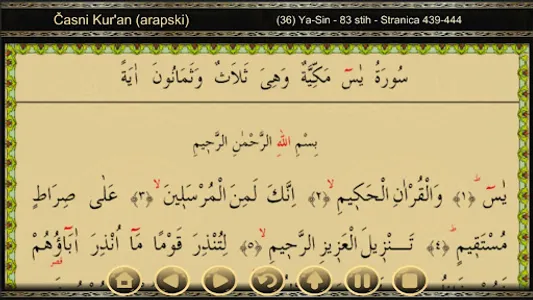 Časni Kur'an (arapski)
(36) Ya-Sin - 83 stih - Stranica 439-444
سُورَةُ يٰسٓ مَكِّيَّةٌ وَهِىَ ثَلَاثٌ وَثَمَانُونَ اٰيَةً
بِسْمِ اللّٰهِ الرَّحْمٰنِ الرَّح۪يمِ
يٰسٓ ۜ ﴿١﴾ وَالْقُرْاٰنِ الْحَك۪يمِ ۙ ﴿٢﴾ اِنَّكَ لَمِنَ الْمُرْسَل۪ينَ ۙ ﴿٣﴾ عَلٰى صِرَاطٍ
مُسْتَق۪يمٍ ۜ ﴿٤﴾ تَنْز۪يلَ الْعَز۪يزِ الرَّح۪يمِ ۙ ﴿٥﴾ لِتُنْذِرَ قَوْمًا مَٓا اُنْذِرَ اٰبَٓاؤُ۬هُمْ
قصر